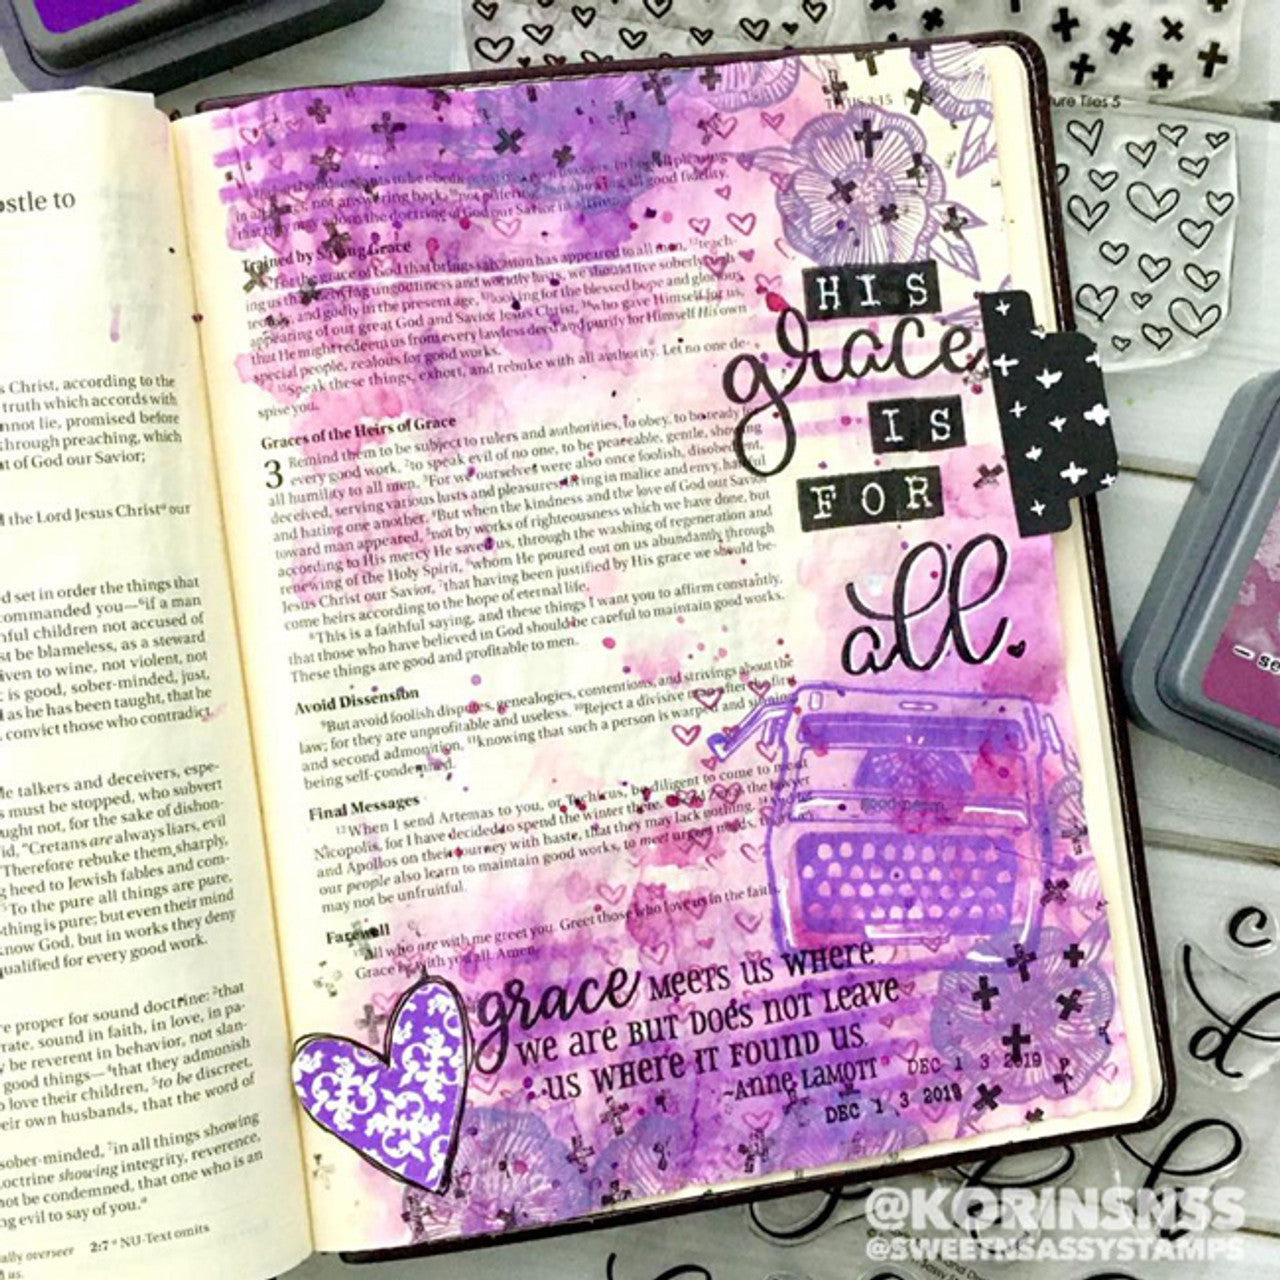 ostle to
s Christ, according to the
truth which accords with
nnot lie, promised before
through preaching, which
t of God our Savior;
the Lord Jesus Christ our
d set in order the things that
commanded you—⁶if a man
hful children not accused of
st be blameless, as a steward
iven to wine, not violent, not
is good, sober-minded, just,
as he has been taught, that he
convict those who contradict.
le talkers and deceivers, espe-
s must be stopped, who subvert
ught not, for the sake of dishon-
id, "Cretans are always liars, evil
Therefore rebuke them sharply,
g heed to Jewish fables and com-
To the pure all things are pure,
thing is pure; but even their mind
know God, but in works they deny
qualified for every good work.
e proper for sound doctrine: ²that
rate, sound in faith, in love, in pa-
be reverent in behavior, not slan-
good things—⁴that they admonish
o love their children, ⁵to be discreet,
eir own husbands, that the word of
sober-minded, ⁷in all things showing
octrine showing integrity, reverence,
not be condemned, that one who is an
ng evil to say of you.
ally overseer 2:7 NU-Text omits
us.
in all things, not answering back, ¹⁰not pilfering, but showing all good fidelity,
that they may adorn the doctrine of God our Savior in all
Trained by Saving Grace
For the grace of God that brings salvation has appeared to all men, ¹²teach-
ing us that, denying ungodliness and worldly lusts, we should live soberly,
and godly in the present age, ¹³looking for the blessed hope and glorious
appearing of our great God and Savior Jesus Christ, ¹⁴who gave Himself for us,
that He might redeem us from every lawless deed and purify for Himself His own
special people, zealous for good works.
¹⁵Speak these things, exhort, and rebuke with all authority. Let no one de-
spise you.
Graces of the Heirs of Grace
3 Remind them to be subject to rulers and authorities, to obey, to be ready
every good work, ²to speak evil of no one, to be peaceable, gentle, showing
all humility to all men. ³For we ourselves were also once foolish, disobedient,
deceived, serving various lusts and pleasures, living in malice and envy, hateful
and hating one another. ⁴But when the kindness and the love of God our Savior
toward man appeared, ⁵not by works of righteousness which we have done, but
according to His mercy He saved us, through the washing of regeneration and
renewing of the Holy Spirit, ⁶whom He poured out on us abundantly through
Jesus Christ our Savior, ⁷that having been justified by His grace we should be-
come heirs according to the hope of eternal life.
⁸This is a faithful saying, and these things I want you to affirm constantly,
that those who have believed in God should be careful to maintain good works.
These things are good and profitable to men.
Avoid Dissension
⁹But avoid foolish disputes, genealogies, contentions, and strivings about the
law; for they are unprofitable and useless. ¹⁰Reject a divisive man after the first
and second admonition, ¹¹knowing that such a person is warped and sinning,
being self-condemned.
Final Messages
¹²When I send Artemas to you, or Tychicus, be diligent to come to me at
Nicopolis, for I have decided to spend the winter there. the lawyer
and Apollos on their journey with haste, that they may lack nothing.
our people also learn to maintain good works, to meet urgent needs, that they
may not be unfruitful.
Farewell
All who are with me greet you. Greet those who love us in the faith.
Grace be with you all. Amen.
TITUS 3:15
HIS
grace
IS
FOR
all.
grace meets us where
we are but does not leave
us where it found us.
~Anne Lamott
DEC 1 3 2019
DEC 1 3 2019
ure Tiles 5
@KORINSN55
@SWEETNSASSYSTAMPS